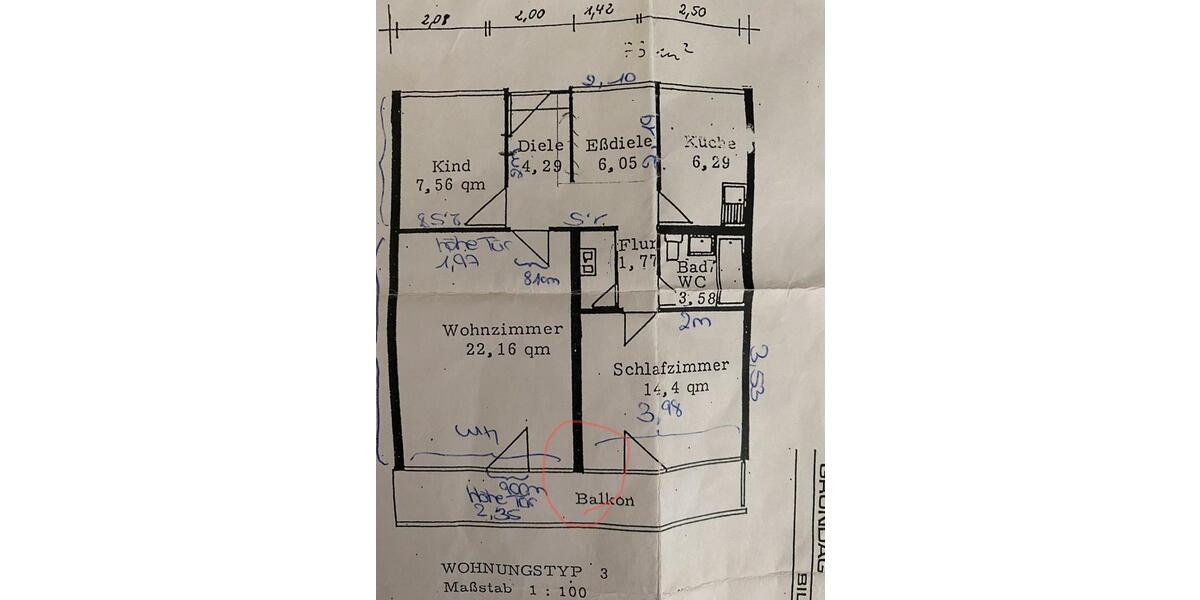 2,08 2,00 1,42 2,50
m²
2,10
Kind
7,56 qm
Diele
4,29
Eßdiele
6,05
Küche
6,29
2,58
Höhe Tür
1,97
81cm
Flur
1,77
Bad/
WC
3,58
2m
Wohnzimmer
22,16 qm
Schlafzimmer
14,4 qm
3,98
3,53
4m
90cm
Höhe Tür
2,35
Balkon
WOHNUNGSTYP 3
Maßstab 1 : 100